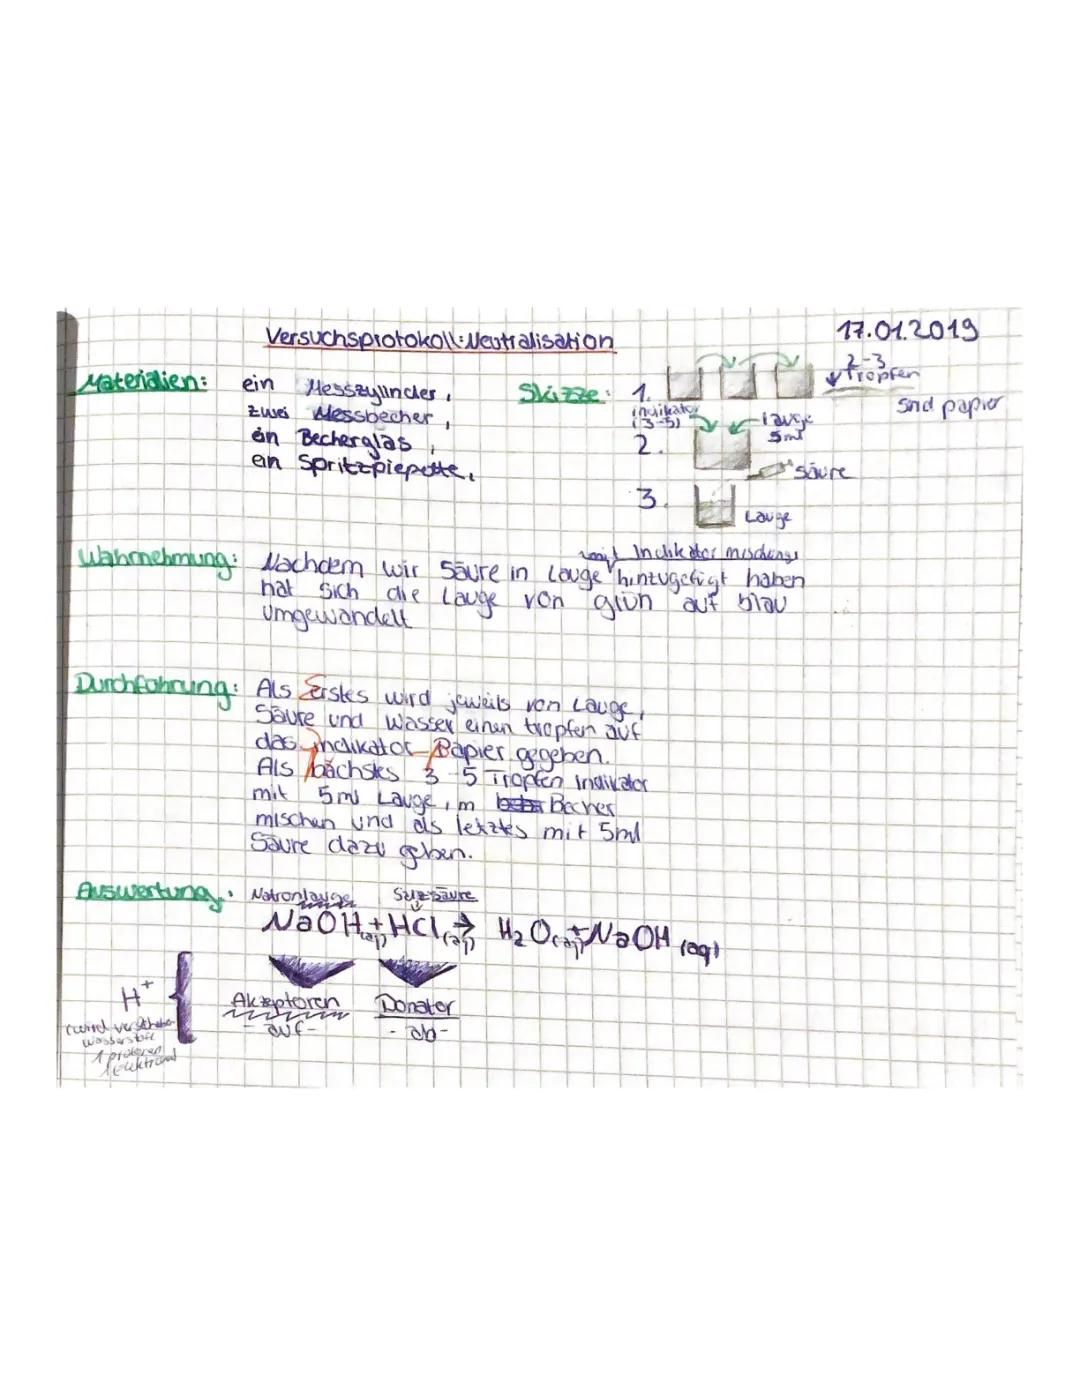 Versuchsprotokoll: Neutralisation
17.01.2019
Materialien: ein Messzylinder,
zwei Messbecher,
ein Becherglas,
ein Spritzpiepette,
Skizze: 1.
2-3
Tropfen
papier
indikator
(3-5)
Lauge
5ml
2.
Säure
3.
Lauge
mit Indikator mischung
Wahrnehmung: Nachdem wir Säure in Lauge hinzugefügt haben
hat sich die Lauge von grün auf blau
Umgewandelt
Durchführung: Als erstes wird jeweils von Lauge,
Säure und Wasser einen tropfen auf
das indikator-Papier gegeben.
Als nächstes 3-5 Tropfen Indikator
mit 5ml Lauge im Becher
mischen und als letztes mit 5ml
Säure dazu geben.
Auswertung: Natronlauge Salzsäure
NaOH(aq) + HCl(aq) → H₂O(aq) + NaOH (aq)
H⁺
Akzeptoren Donator
- auf - - ab -
(wird
Wasserstoff
1 protonen
1 elektron)